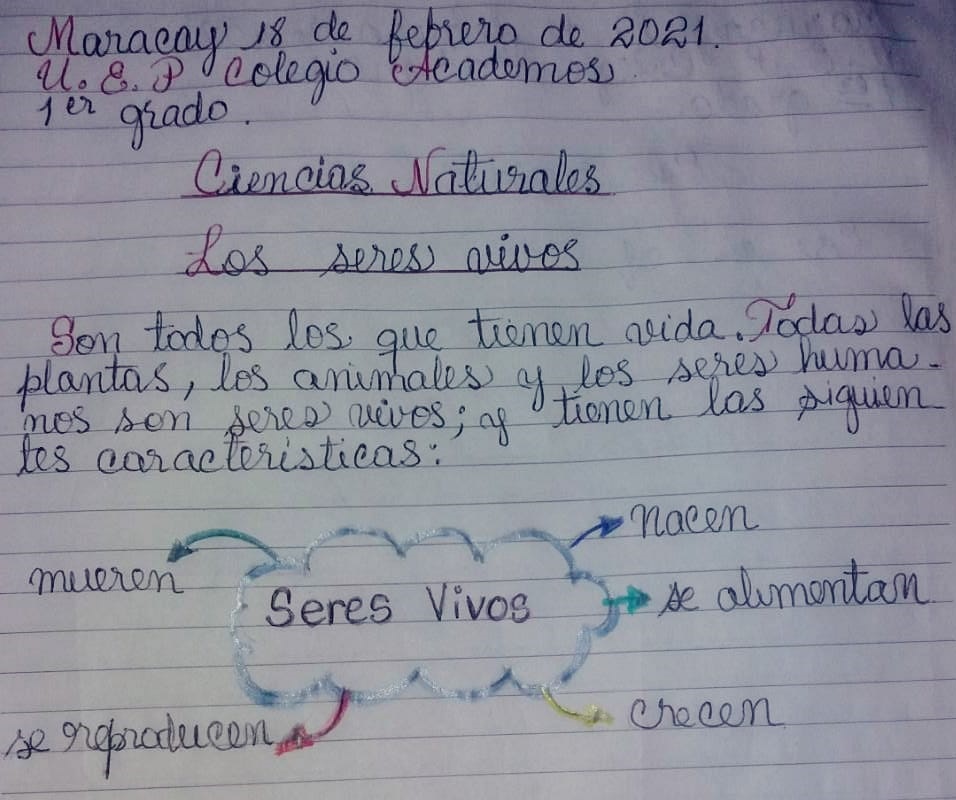 Maracay 18 de febrero de 2021.
U. E. P Colegio Academos
1er grado.
Ciencias Naturales
Los seres vivos
Son todos los que tienen vida. Todas las
plantas, los animales y los seres huma-
nos son seres vivos; y tienen las siguien
tes caracteristicas:
nacen
mueren
Seres Vivos
se alimentan
crecen
se reproducen